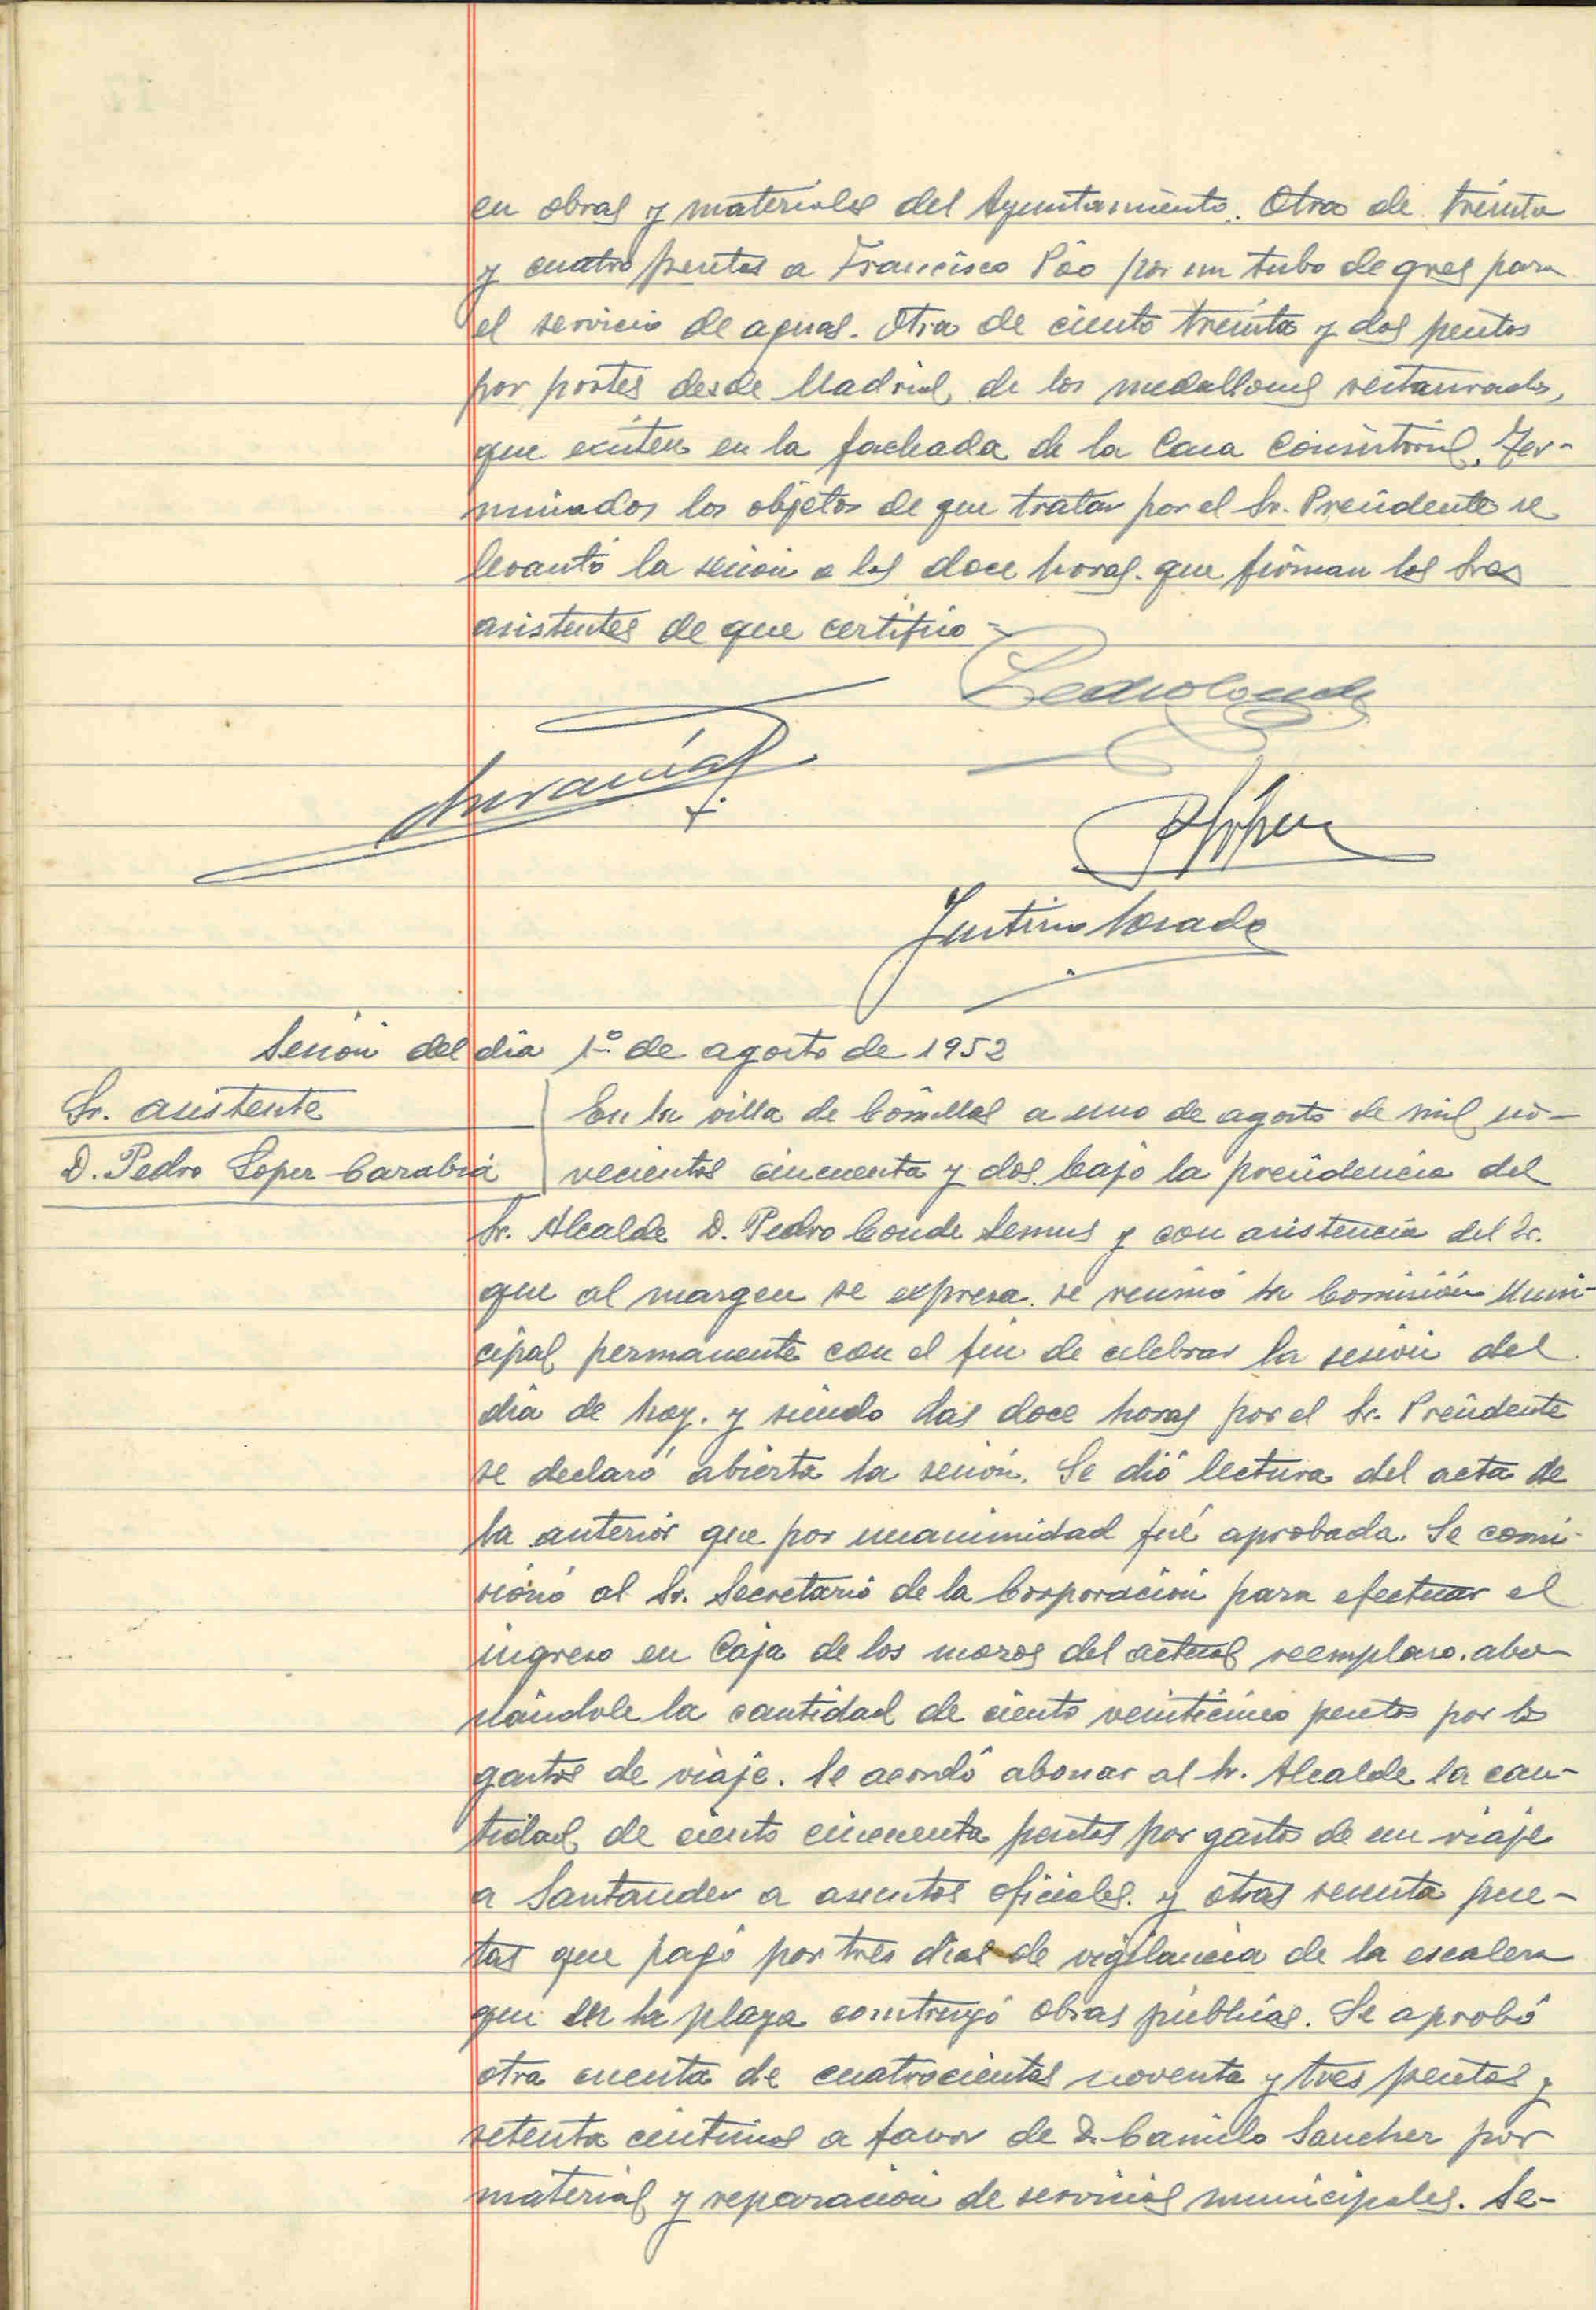 en obras y materiales del Ayuntamiento. Otra de treinta
y cuatro pesetas a Francisco Pío por un tubo de gres para
el servicio de aguas. Otra de ciento treinta y dos pesetas
por portes desde Madrid de los medallones restaurados,
que existen en la fachada de la Casa Consistorial. Ter-
minados los objetos de que tratar por el Sr. Presidente se
levantó la sesión a las doce horas. que firman los Sres
asistentes de que certifico =
Pedro Conde
P López
Justino Posado
Sesión del día 1º de agosto de 1952
Sr. asistente
D. Pedro Lopez Carabia
En la villa de Comillas a uno de agosto de mil no-
vecientos cincuenta y dos. bajo la presidencia del
Sr. Alcalde D. Pedro Conde Lemus y con asistencia del Sr.
que al margen se expresa. se reunió la Comisión Muni-
cipal permanente con el fin de celebrar la sesión del
día de hoy. y siendo las doce horas por el Sr. Presidente
se declaró abierta la sesión. Se dió lectura del acta de
la anterior que por unanimidad fué aprobada. Se comi-
sionó al Sr. Secretario de la Corporación para efectuar el
ingreso en Caja de los mozos del actual reemplazo. abo-
nándole la cantidad de ciento veinticinco pesetas por los
gastos de viaje. Se acordó abonar al Sr. Alcalde la can-
tidad de ciento cincuenta pesetas por gastos de un viaje
a Santander a asuntos oficiales. y otras sesenta pese-
tas que pagó por tres días de vigilancia de la escalera
que en la playa construyó Obras públicas. Se aprobó
otra cuenta de cuatrocientas noventa y tres pesetas y
setenta centimos a favor de D. Camilo Sanchez por
material y reparación de servicios municipales. Se-